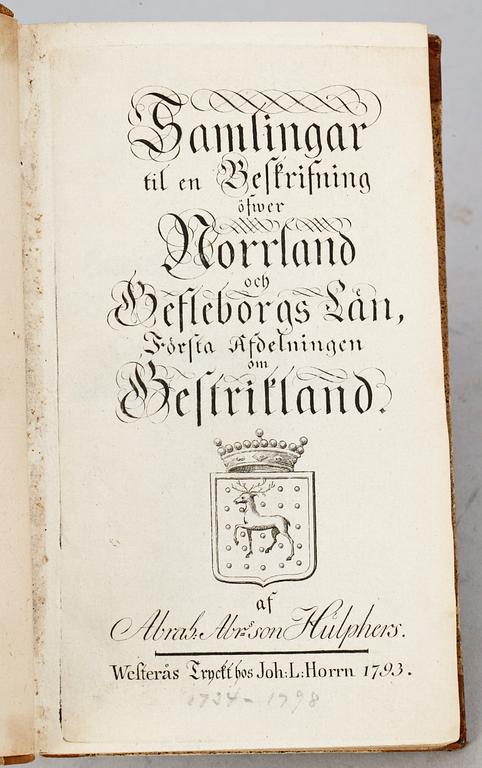 Samlingar
til en Beskrifning
öfwer
Norrland
och
Gefleborgs Län,
Första Afdelningen
om
Gestrikland.
af
Abrah. Abr:son Hülphers.
Westerås Tryckt hos Joh: L: Horrn 1793.
1734-1798